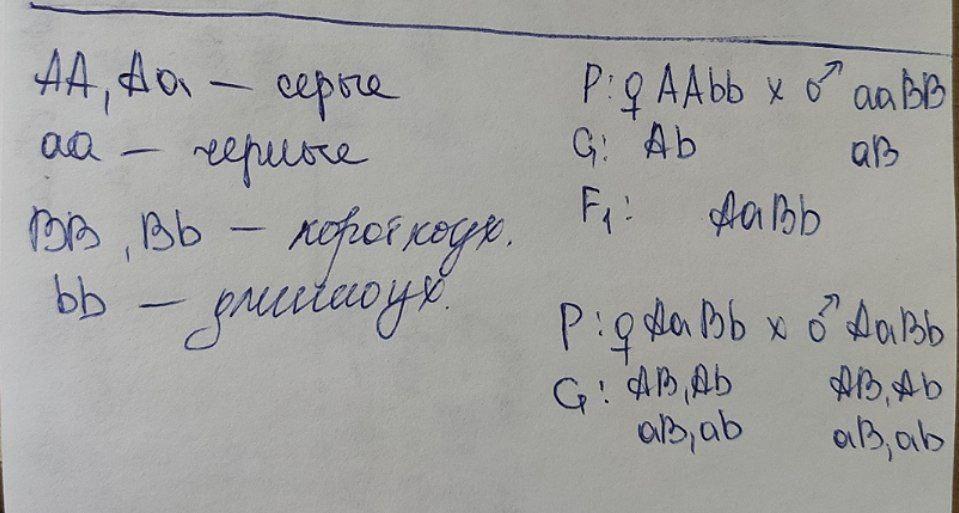 AA, Aa — серые
aa — черные
BB, Bb — короткоух.
bb — длинноух.
P: ♀ AAbb x ♂ aaBB
G: Ab aB
F₁: AaBb
P: ♀ AaBb x ♂ AaBb
G: AB, Ab AB, Ab
aB, ab aB, ab